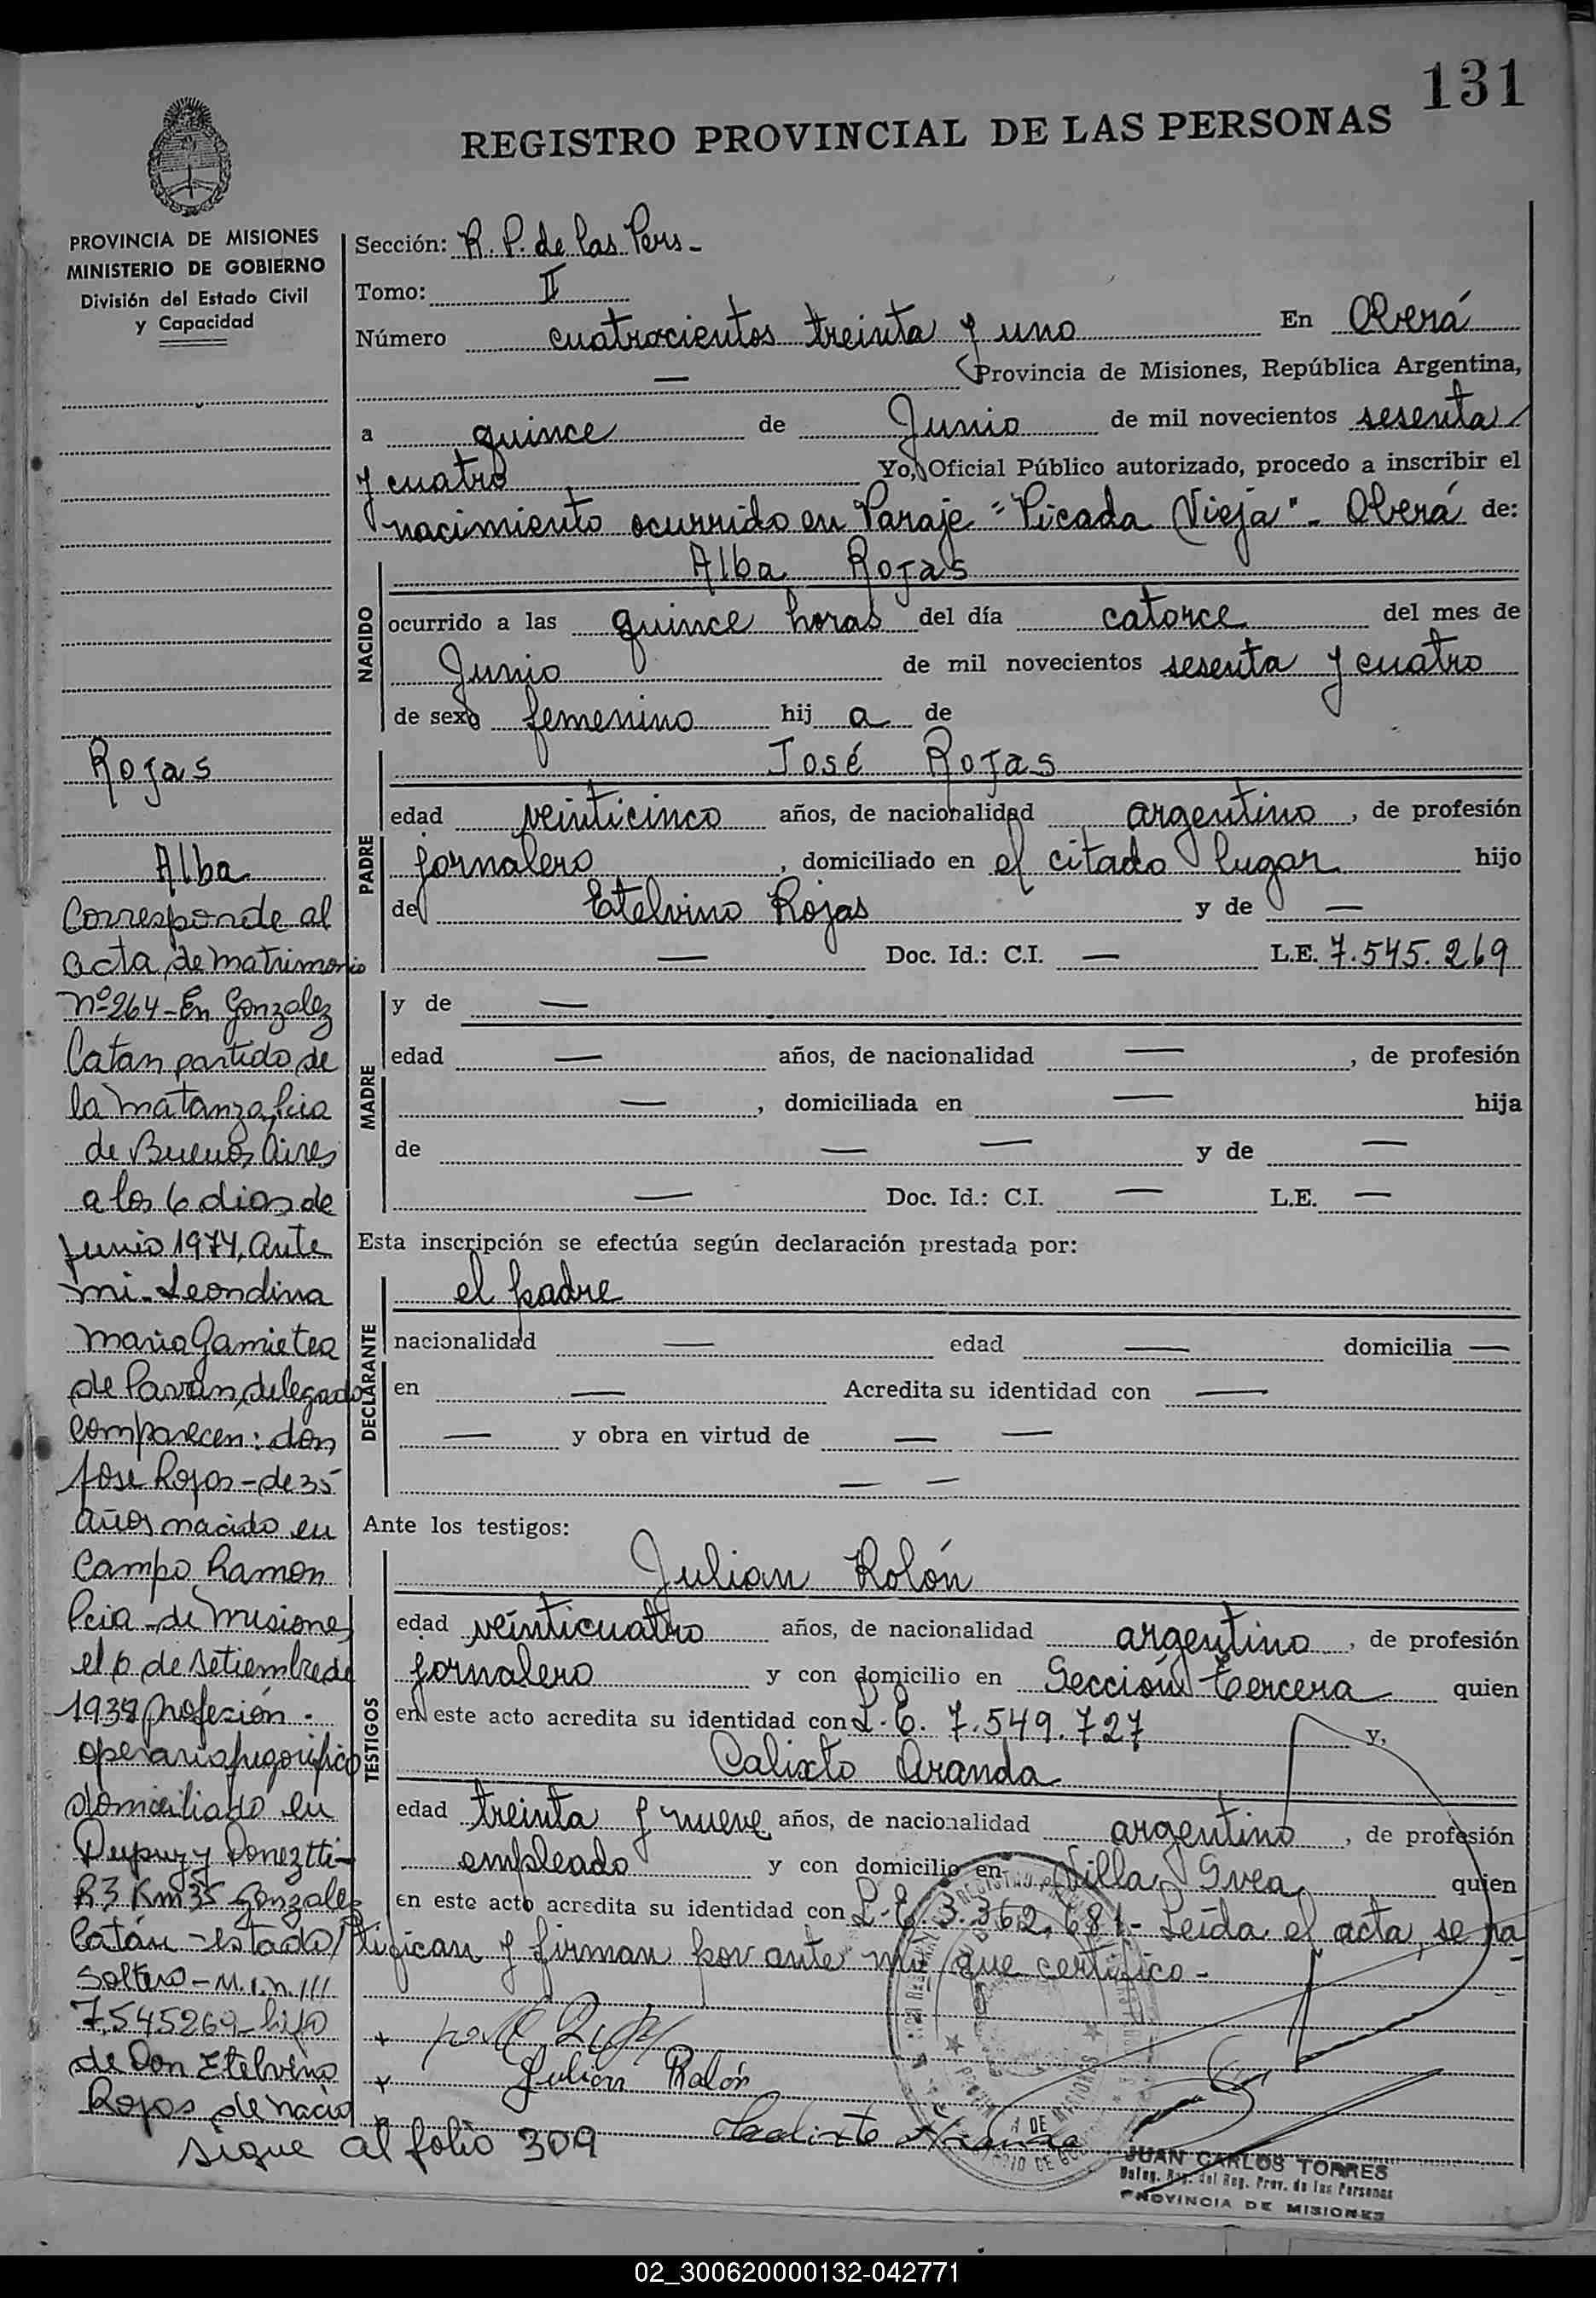 131
REGISTRO PROVINCIAL DE LAS PERSONAS
PROVINCIA DE MISIONES
MINISTERIO DE GOBIERNO
División del Estado Civil
y Capacidad
Rojas
Alba
Corresponde al
acta de matrimonio
nº 264 - En Gonzalez
Catan partido de
la Matanza, Pcia
de Buenos Aires
a los 6 dias de
Junio 1974, Ante
mi - Leondina
Maria Gamietea
de Pavan, delegado
comparecen: don
Jose Rojas - de 35
años nacido en
Campo Ramon
Pcia - de Misiones
el 6 de setiembre de
1938 profesión -
operario frigorifico
domiciliado en
Dupuy y Doneztti -
R3 Km 35 Gonzalez
Catán - estado
soltero - M.I.n. ///
7.545269 - hijo
de Don Etelvino
Rojas de nacio
sigue al folio 309
Sección: R. P. de las Pers -
Tomo: II
Número cuatrocientos treinta y uno En Oberá
— Provincia de Misiones, República Argentina,
a quince de Junio de mil novecientos sesenta
y cuatro Yo, Oficial Público autorizado, procedo a inscribir el
nacimiento ocurrido en Paraje "Picada Vieja" - Oberá de:
NACIDO
Alba Rojas
ocurrido a las quince horas del día catorce del mes de
Junio de mil novecientos sesenta y cuatro
de sexo femenino hij a de
PADRE
José Rojas
edad veinticinco años, de nacionalidad argentino, de profesión
jornalero, domiciliado en el citado lugar hijo
de Etelvino Rojas y de —
— Doc. Id.: C.I. — L.E. 7.545.269
MADRE
y de —
edad — años, de nacionalidad —, de profesión
—, domiciliada en — hija
de — — y de —
— Doc. Id.: C.I. — L.E. —
Esta inscripción se efectúa según declaración prestada por:
DECLARANTE
el padre
nacionalidad — edad — domicilia —
en — Acredita su identidad con —
— y obra en virtud de — —
— —
Ante los testigos:
TESTIGOS
Julian Rolón
edad veinticuatro años, de nacionalidad argentino, de profesión
jornalero y con domicilio en Sección Tercera quien
en este acto acredita su identidad con L.E. 7.549.727 y,
Calixto Aranda
edad treinta y nueve años, de nacionalidad argentino, de profesión
empleado y con domicilio en Villa Svea quien
en este acto acredita su identidad con L.E. 3.362.681 - Leída el acta, se ra
tifican y firman por ante mi que certifico -
Julian Rolón
Calixto Aranda
JUAN CARLOS TORRES
Deleg. Reg. del Reg. Prov. de las Personas
PROVINCIA DE MISIONES
02_300620000132-042771